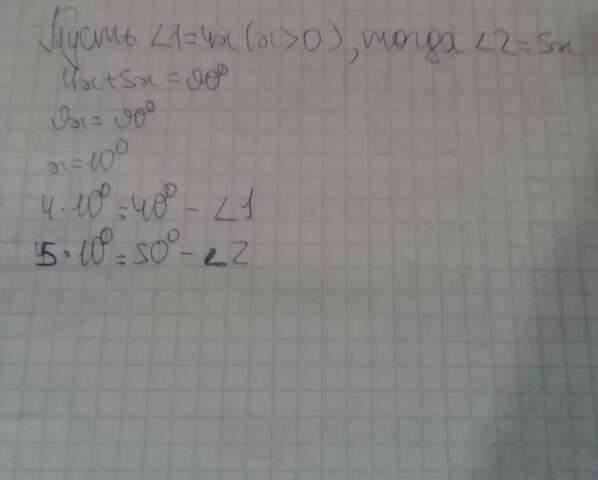 Пусть ∠1=4x (x>0), тогда ∠2=5x
4x+5x=90⁰
9x=90⁰
x=10⁰
4·10⁰=40⁰ - ∠1
5·10⁰=50⁰ - ∠2